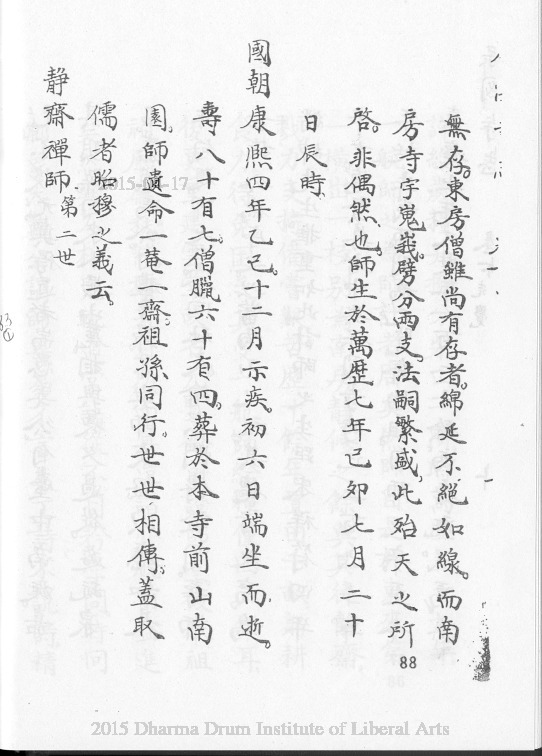 無存。東房僧雖尚有存者。綿延不絕如線。而南
房寺宇嵬峩。劈分兩支。法嗣繁盛。此殆天之所
啓。非偶然也。師生於萬歷七年己卯七月二十
日辰時。
國朝康熙四年乙巳。十二月示疾。初六日端坐而逝。
壽八十有七。僧臘六十有四。葬於本寺前山南
園。師遺命一菴一齋。祖孫同行。世世相傳。蓋取
儒者昭穆之義云。
静齋禪師第二世
88
2015 Dharma Drum Institute of Liberal Arts